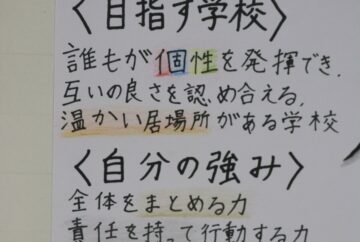 〈目指す学校〉
誰もが個性を発揮でき、
互いの良さを認め合える、
温かい居場所がある学校
〈自分の強み〉
全体をまとめる力
責任を持って行動する力